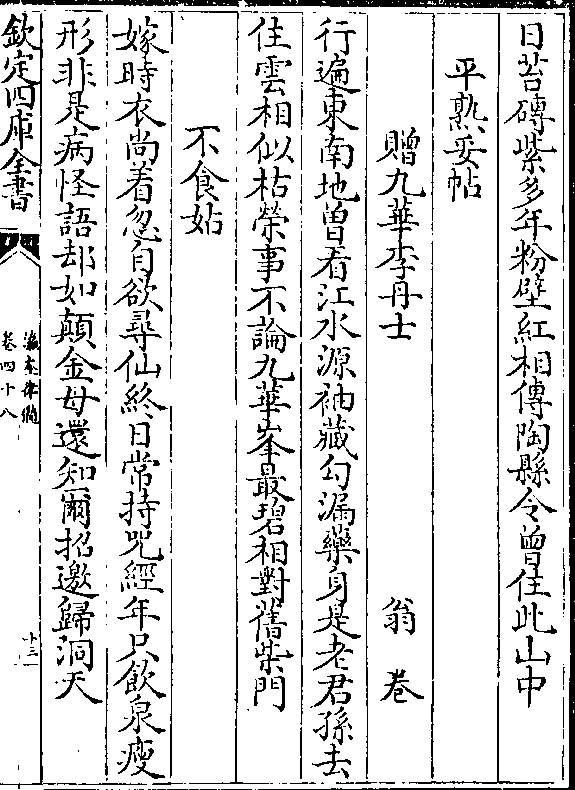 日苔磚紫多年粉壁紅相傳陶縣令曾住此山中
平熟妥帖
贈九華李丹士 翁卷
行遍東南地曾看江水源袖藏勾漏藥身是老君孫去
住雲相似枯榮事不論九華峯最碧相對舊柴門
不食姑
嫁時衣尚着忽自欲尋仙終日常持咒經年只飲泉瘦
形非是病怪語却如顛金母還知爾招邀歸洞天
欽定四庫全書
瀛奎律髓
卷四十八
十三